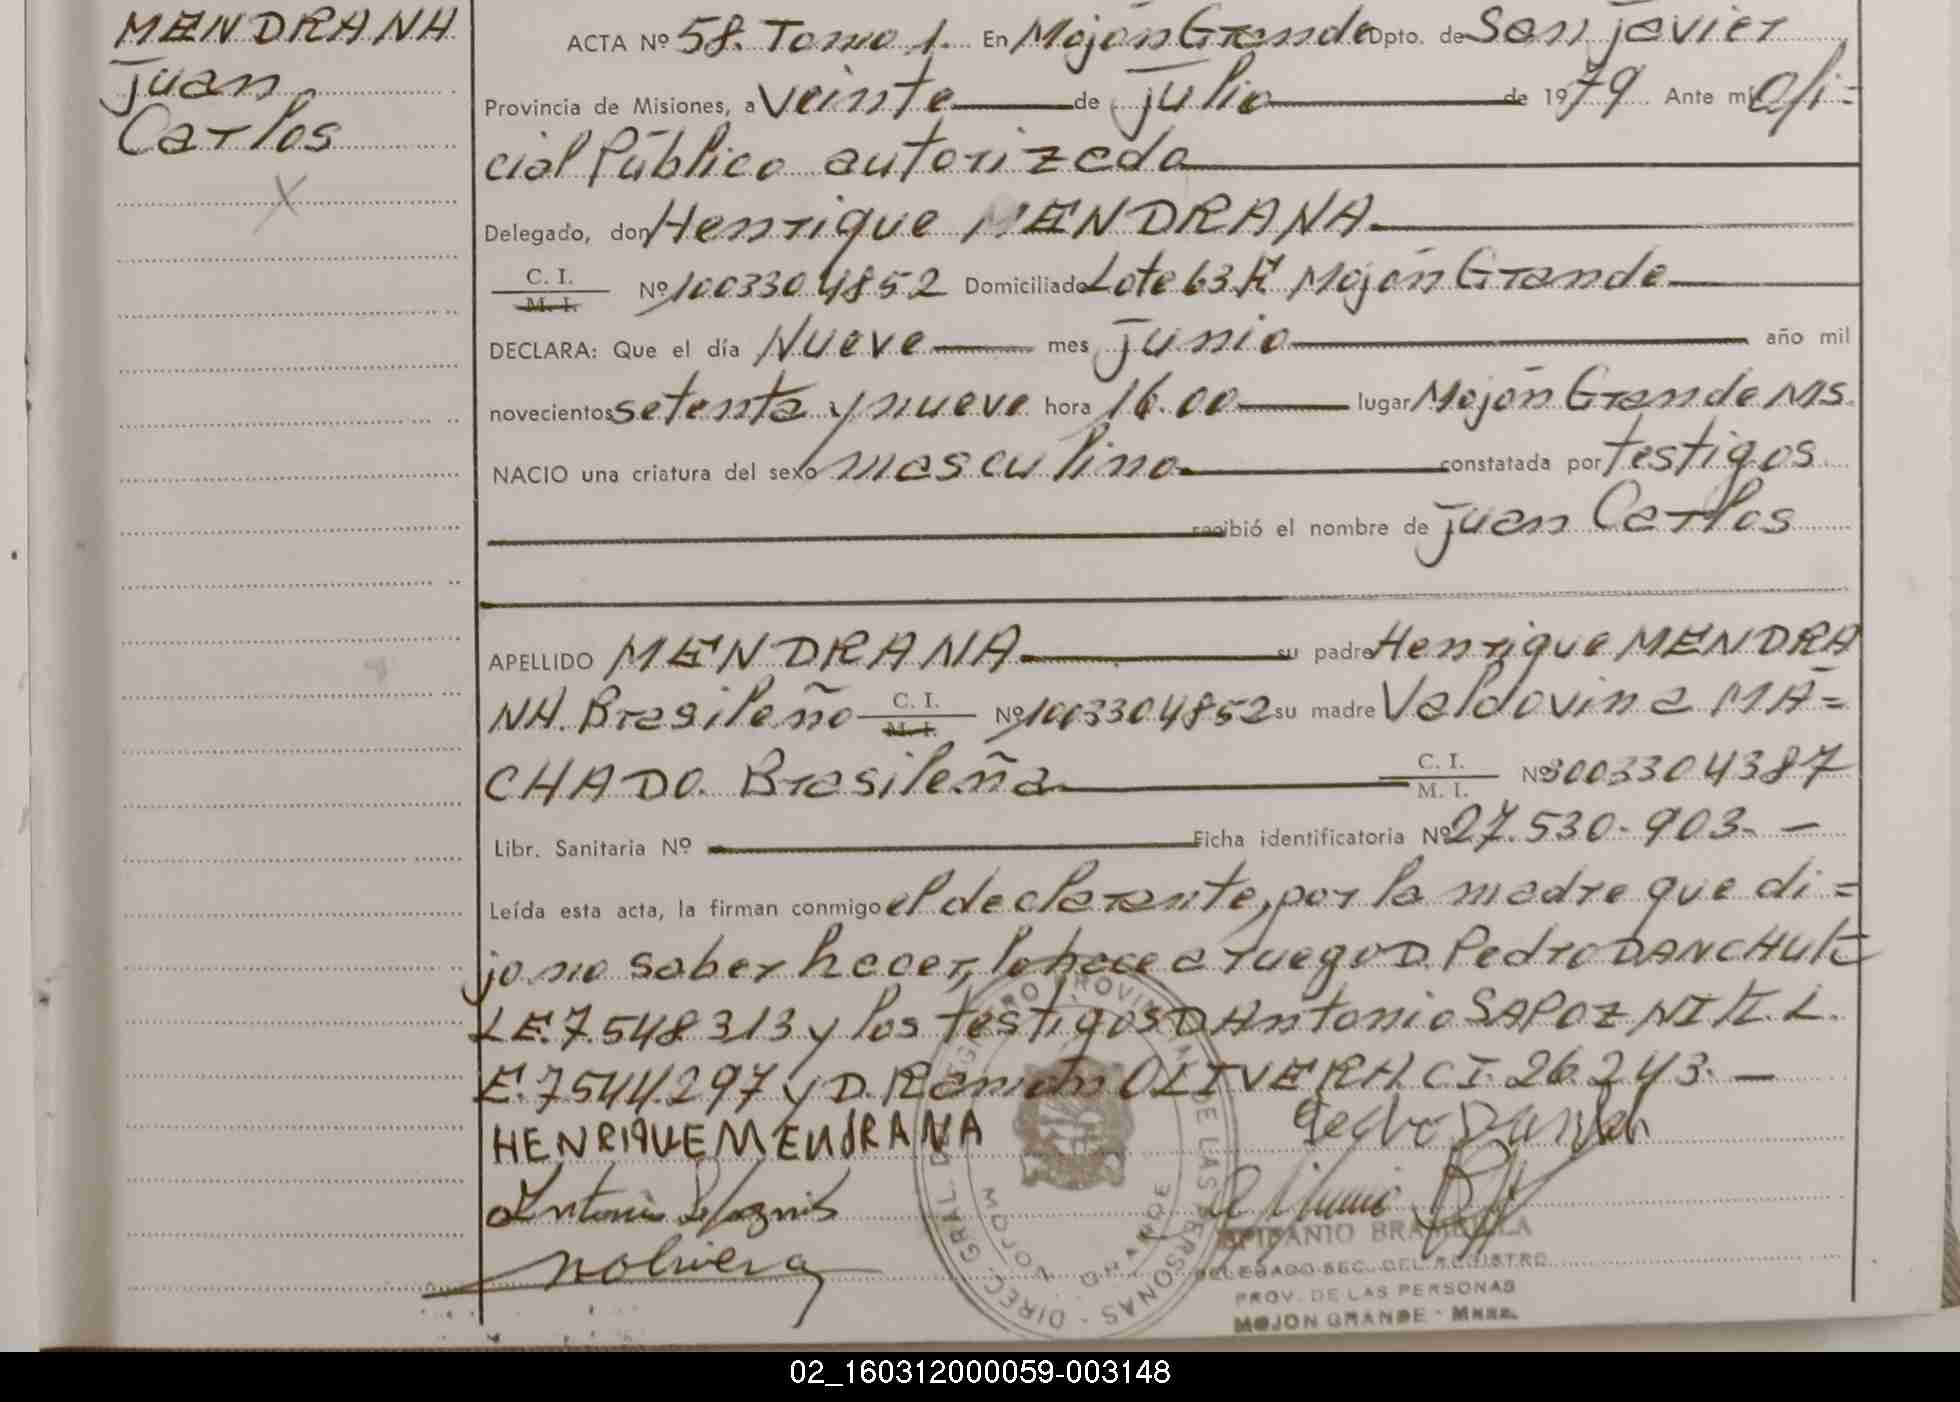 MENDRANA
Juan
Carlos
ACTA Nº 58. Tomo 1. En Mojón Grande Dpto. de San Javier
Provincia de Misiones, a Veinte de Julio de 1979 Ante mí Ofi=
cial Público autorizado
Delegado, don Henrique MENDRANA
C. I.
M. I.
Nº 1003304852 Domiciliado Lote 63 A Mojón Grande
DECLARA: Que el día Nueve mes Junio año mil
novecientos setenta y nueve hora 16.00 lugar Mojón Grande Ms.
NACIO una criatura del sexo masculino constatada por testigos
recibió el nombre de Juan Carlos
APELLIDO MENDRANA su padre Henrique MENDRA
NA. Brasileño C. I. M. I. Nº 1003304852 su madre Valdovina MA=
CHADO. Brasileña C. I. M. I. Nº 3003304387
Libr. Sanitaria Nº Ficha identificatoria Nº 27.530.903.-
Leída esta acta, la firman conmigo el declarante, por la madre que di=
jo no saber hacer, lo hace a ruego D. Pedro DANCHUK
LE. 7.548.313 y los testigos D Antonio SAPOZNIK. L.
E. 7544.297 y D. Ramón OLIVERA. CI. 26.243.-
HENRIQUE MENdRANA
Antonio Sapoznik
EPIFANIO BRAMBILLA
DELEGADO SEC. DEL REGISTRO
PROV. DE LAS PERSONAS
MOJON GRANDE - Mnes.
DIREC. GRAL. DEL REGISTRO PROVINCIAL DE LAS PERSONAS
MOJON GRANDE
02_160312000059-003148